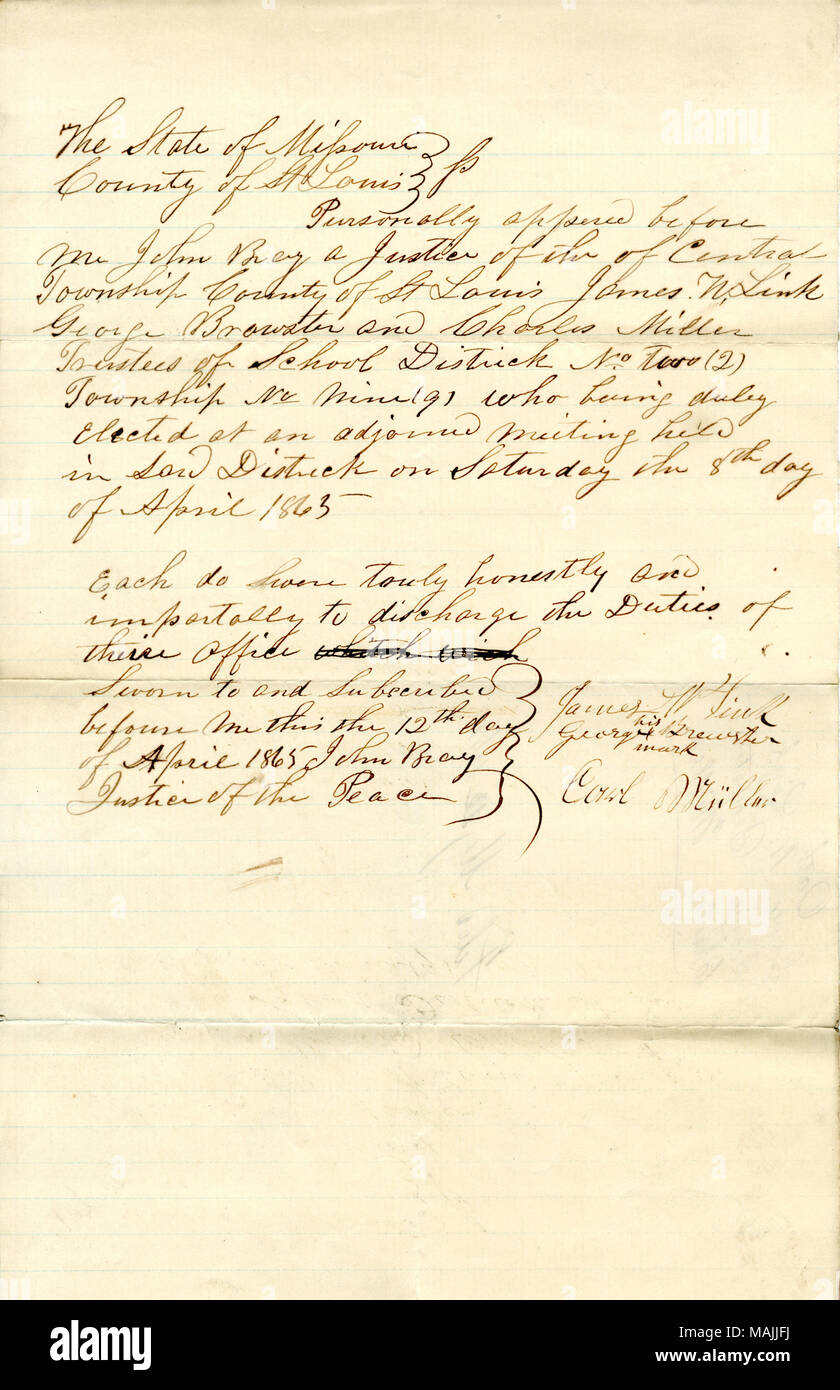 The State of Missouri } ss
County of St Louis }
Pursonally appered before
me John Bray a Justice of the of Central
Township County of St Louis James W. Link
George Browster and Charles Miller
Trustees of School Districk No two (2)
Township No nine (9) who being duley
Elected at an adjorned meeting held
in Said Districk on Saturday the 8th day
of April 1865
Each do swere truly honestly and
impartally to discharge the Duties of
theire office whitch wich
Sworn to and Subscribed
befoure me this the 12th day
of April 1865 John Bray
Justice of the Peace
James W Fink
George his x mark Brewster
Carl Müller
alamy
Image ID: MAJJFJ
www.alamy.com